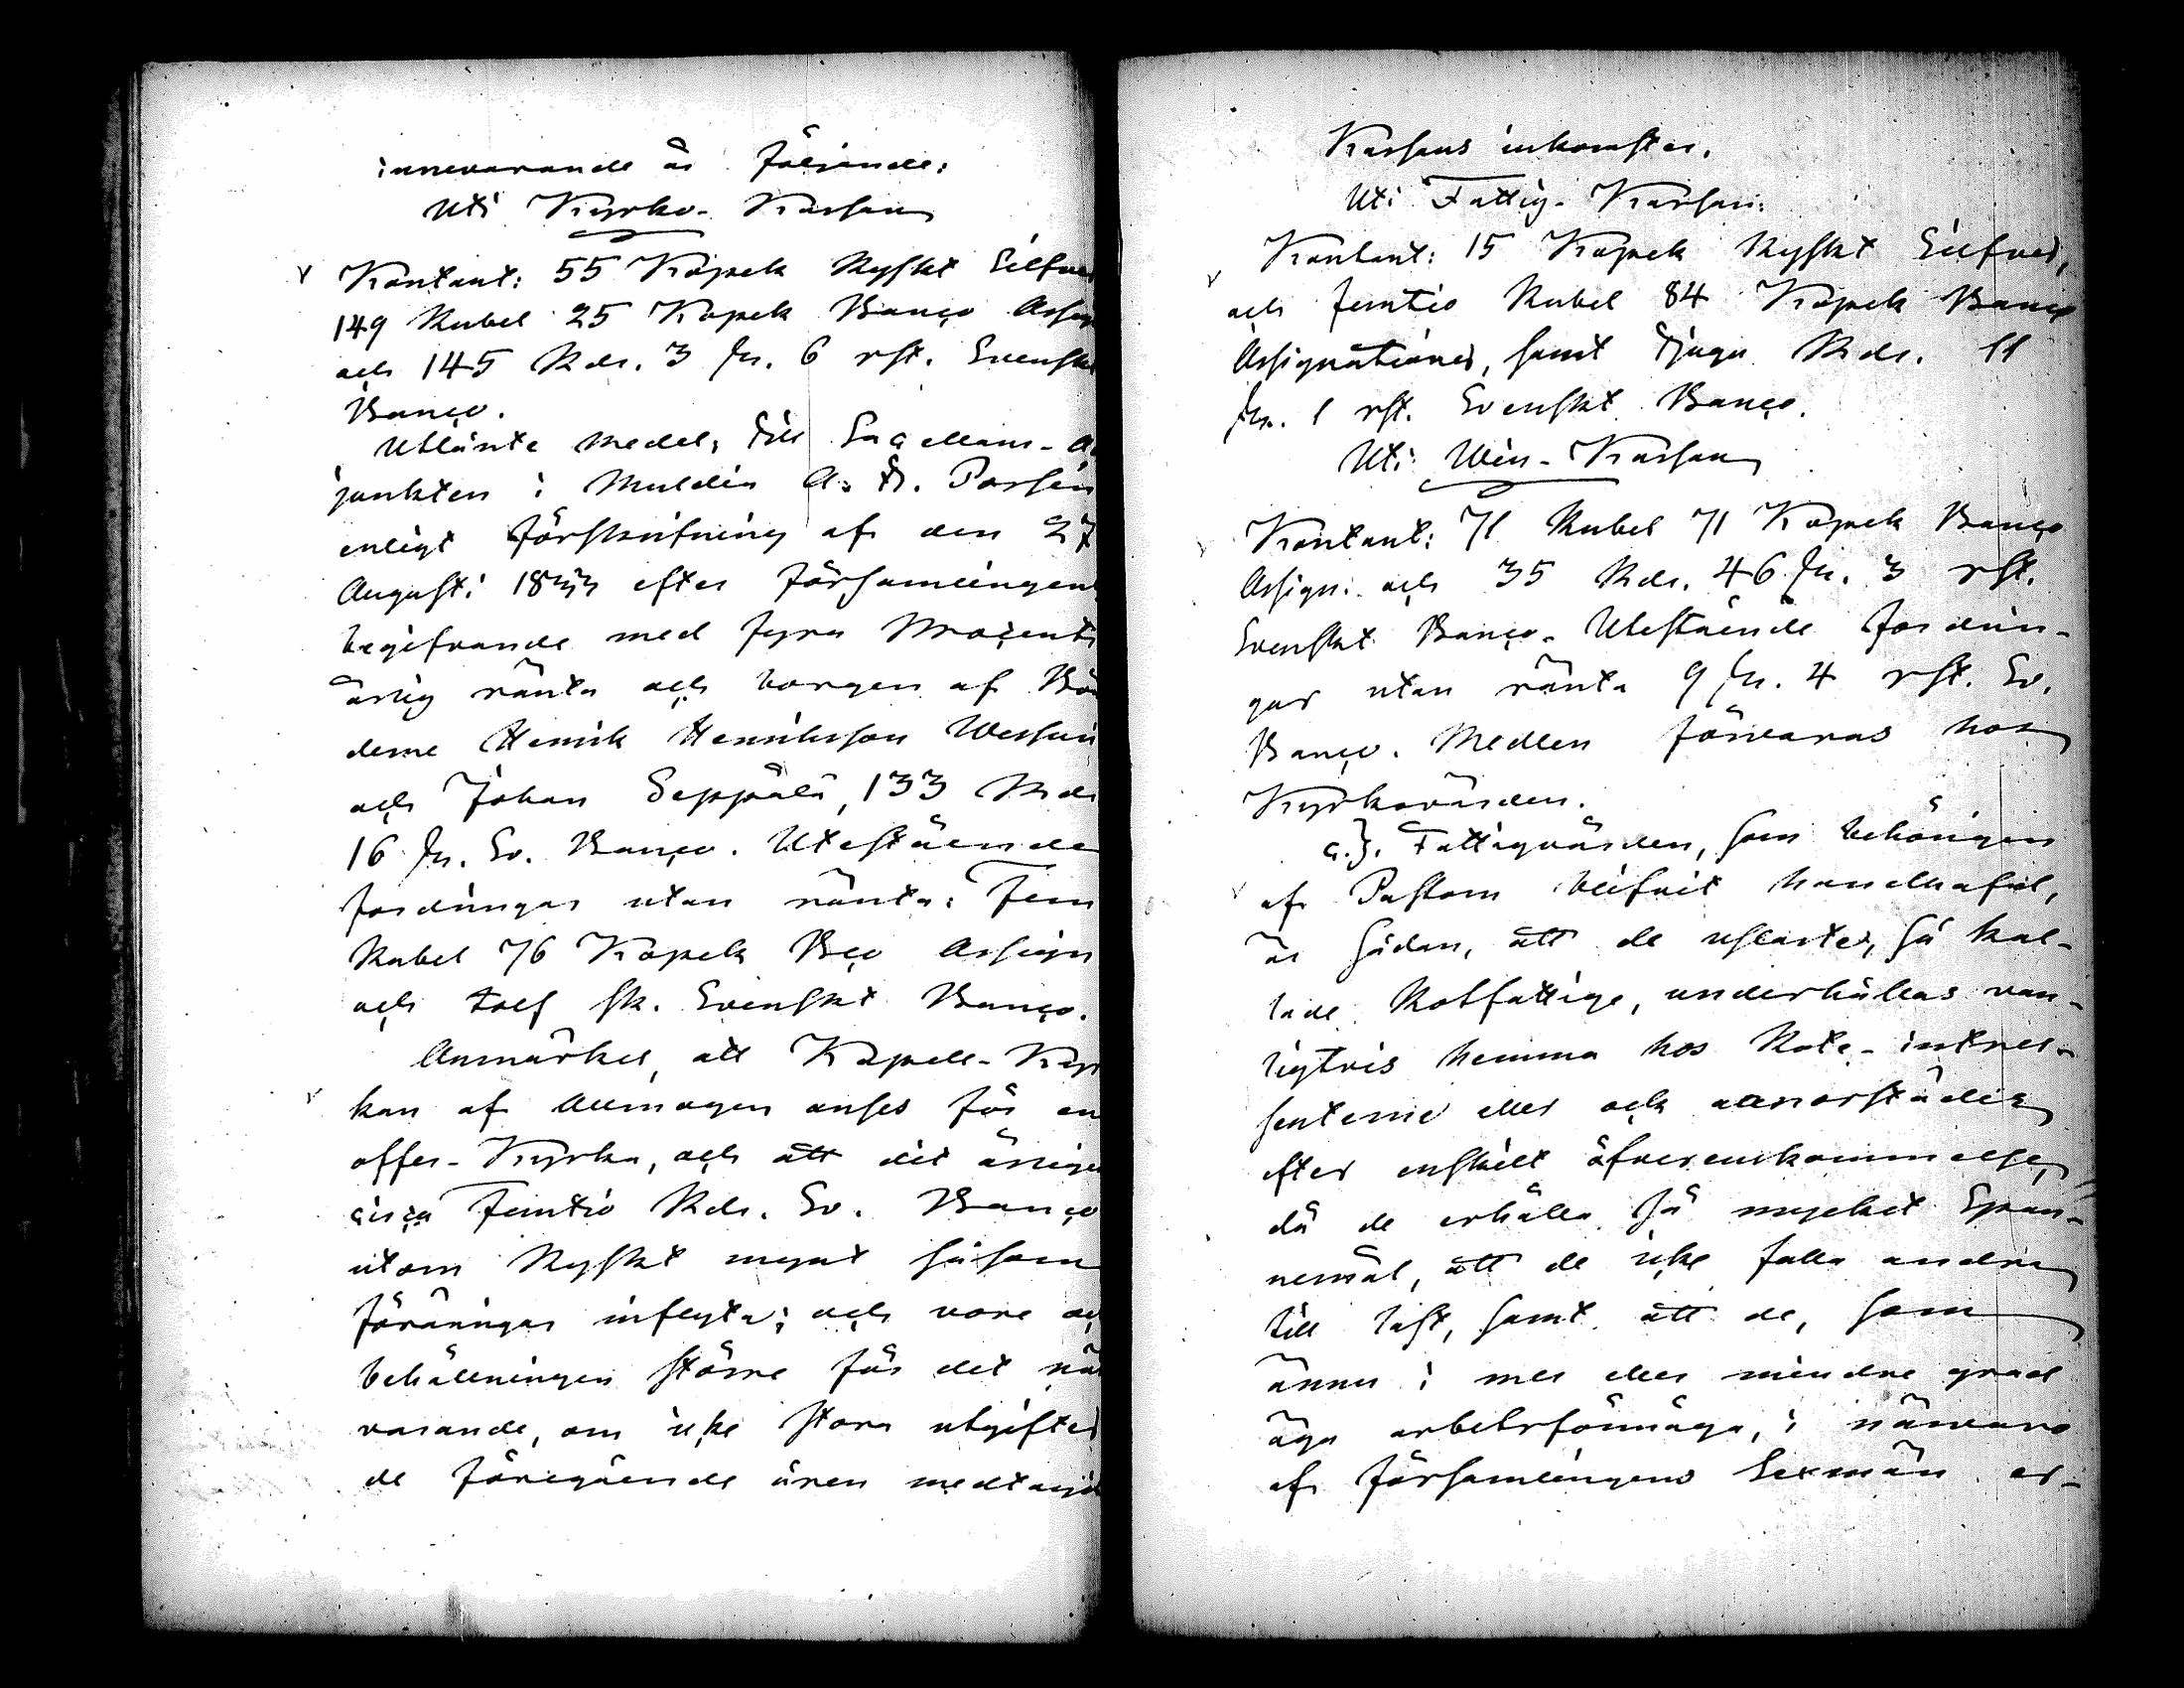 innevarande år följande:
Uti Kyrko-Kassan
Kontant: 55 Kopek Ryskt Silfver
149 Rubel 25 Kopek Banco Assign
och 145 Rdr. 3 sk. 6 rst. Svenskt
Banco.
Utlånte medel: till Sacellans-A
junkten i Muldia A. F. Porsén
enligt förskrifning af den 27
Augusti 1833 efter församlingens
begifvande med fyra Procents
årlig ränta och borgen af Bön
derne Henrik Henriksson Wessari
och Johan Seppälä, 133 Rdr
16 sk. Sv. Banco. Utestående
fordringar utan ränta: Fem
Rubel 76 Kopek Bco Assign
och tolf sk. Svenskt Banco.
Anmärkes, att Kapell-Kyr
kan af Allmogen anses för en
offer-Kyrka, och att dit årligen
circa Femtio Rdr. Sv. Banco
utom Ryskt mynt såsom
föräringar inflyta; och vore och
behållningen större för det när
varande, om icke stora utgifter
de föregående åren medtagit
Kassans inkomster.
Uti Fattig-Kassan:
Kontant: 15 Kopek Ryskt Silfver,
och femtio Rubel 84 Kopek Banco
Assignationer, samt tjugu Rdr. 11
sk. 1 rst. Svenskt Banco.
Uti Win-Kassan
Kontant: 71 Rubel 71 Kopek Banco
Assign: och 35 Rdr. 46 sk. 3 rst.
Svenskt Banco. Utestående fordrin-
gar utan ränta 9 sk. 4 rst. Sv.
Banco. Medlen förvaras hos
Kyrkovärden.
c.). Fattigvården, som behörigen
af Pastorn blifvit handhafd,
är sådan, att de uslaste, så kal-
lade Rotfattige, underhållas van-
ligtvis hemma hos Rote-intres-
senterne eller ock annorstädes
efter enskilt öfverenskommelse,
då de erhålla så mycket Span-
nemål, att de icke falla andra
till last, samt att de, som
ännu i mer eller mindre grad
äga arbetsförmåga, i närvaro
af församlingens Sexmän er-